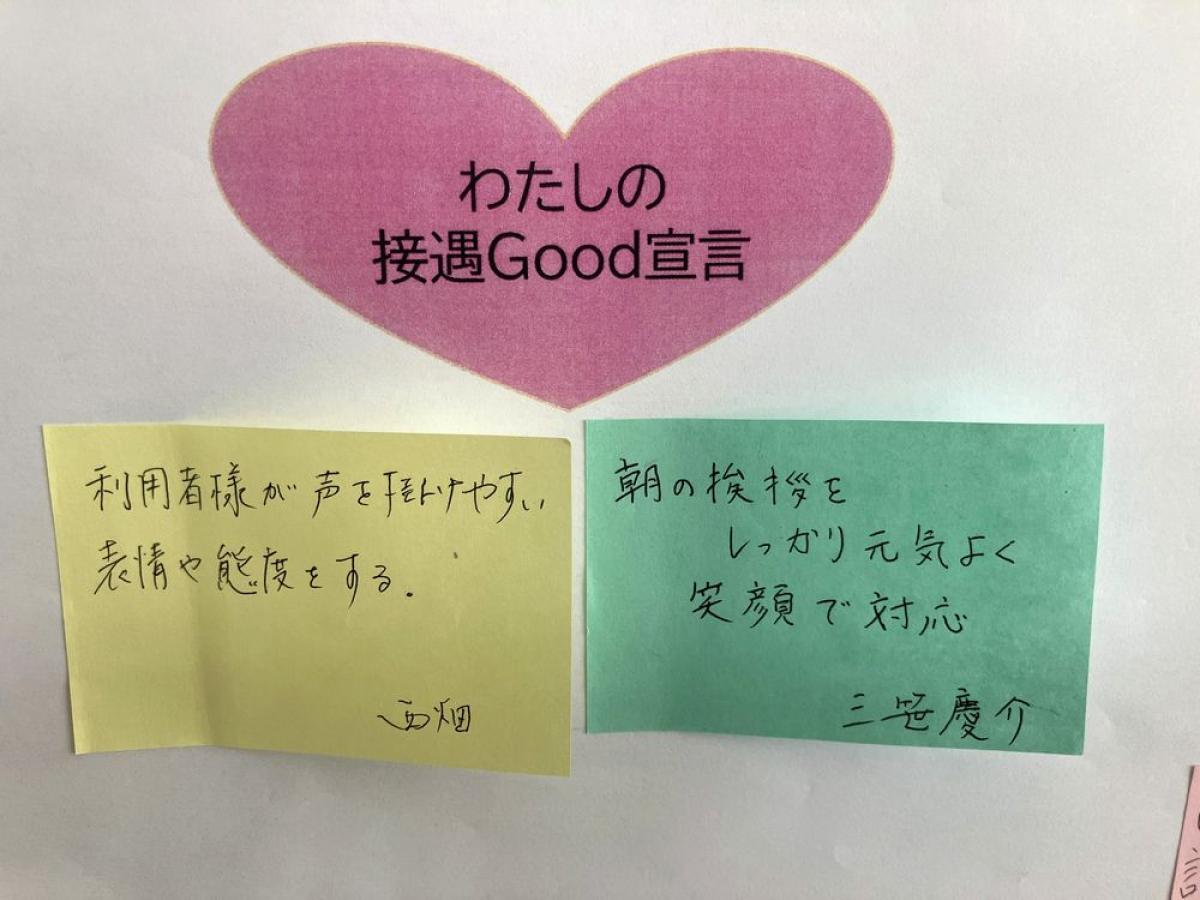 わたしの
接遇Good宣言
利用者様が声を掛けやすい
表情や態度をする.
西畑
朝の挨拶を
しっかり元気よく
笑顔で対応
三笹慶介